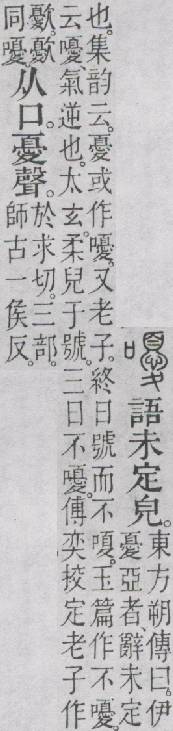 語未定皃。東方朔傳曰。伊憂亞者、辭未定
也。集韵云。憂或作嚘。又老子。終日號而不嗄。玉篇作不嚘。云嚘、氣逆也。太玄。柔兒于號。三日不嚘。傅奕挍定老子作
㱊。㱊同嚘。从口。憂聲。於求切。三部。師古一矦反。